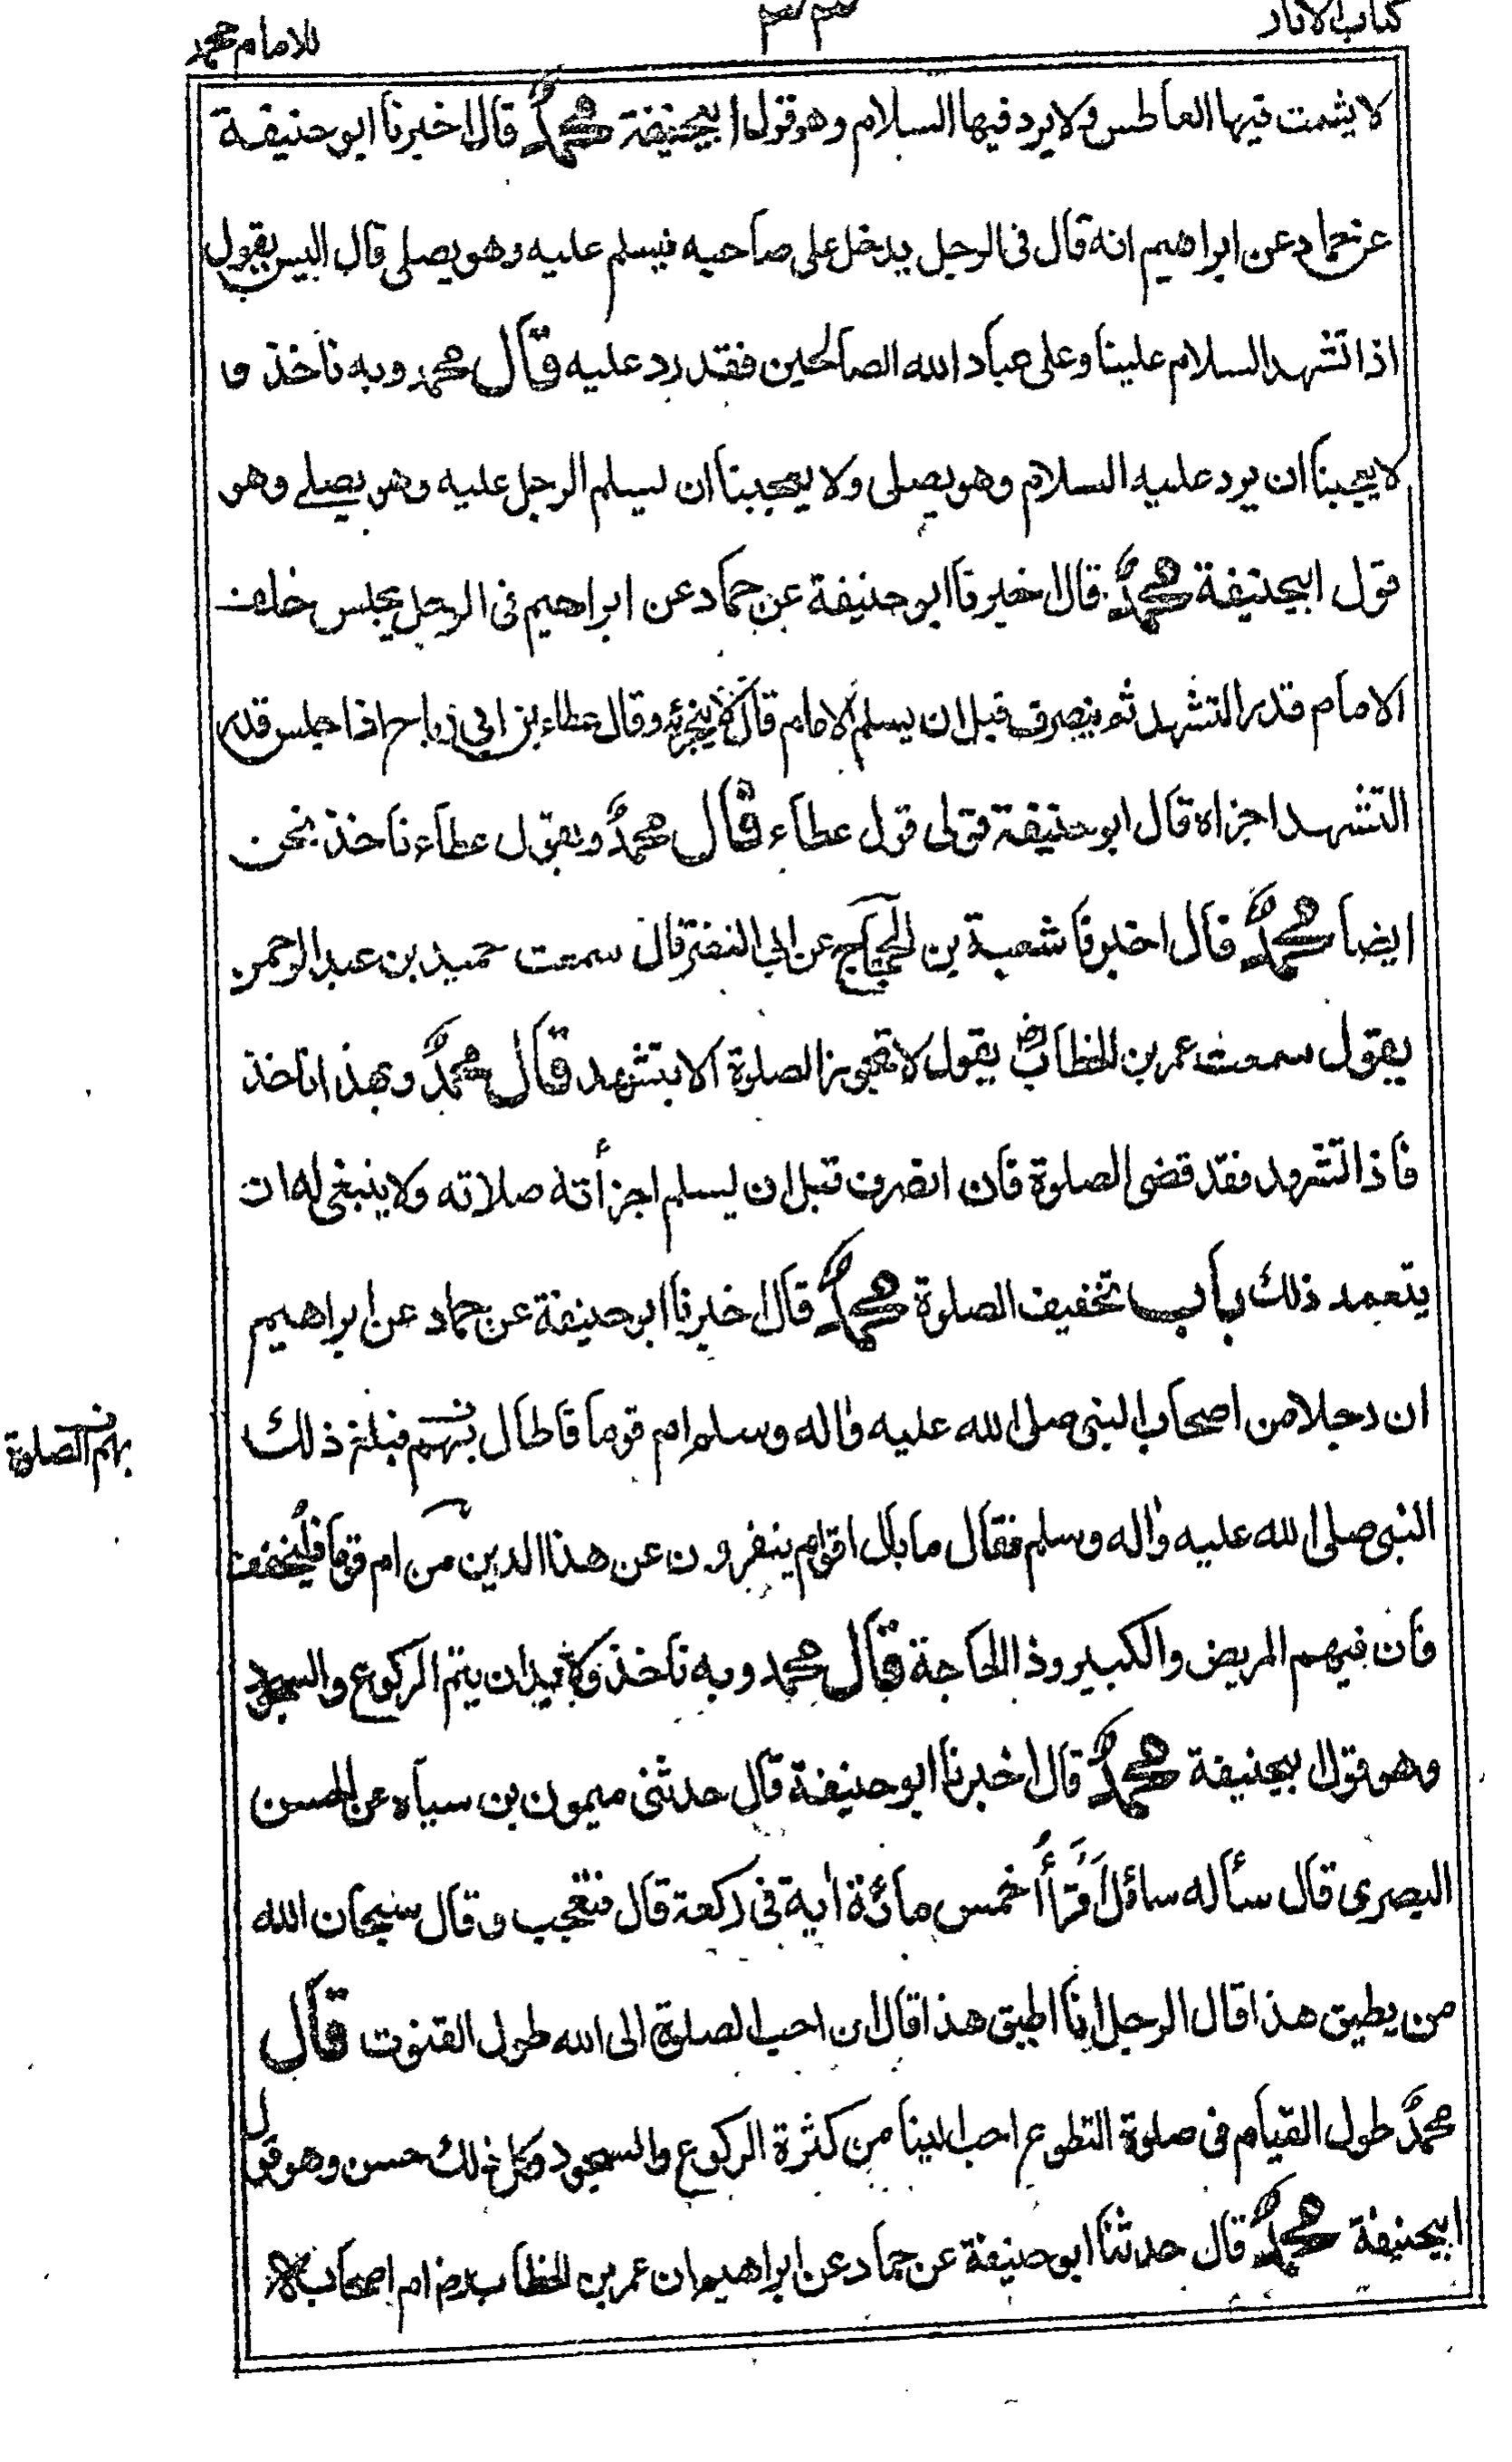 كتاب الاثار ٣٣ للامام محمد
لا يشمت فيها العاطس ولا يرد فيها السلام وهو قول ابيحنيفة محمدٌ قال اخبرنا ابو حنيفة
عن حماد عن ابراهيم انه قال فى الرجل يدخل على صاحبه فيسلم عليه وهو يصلى قال اليس يقول
اذا تشهد السلام علينا وعلى عباد الله الصالحين فقد رد عليه قال محمد وبه ناخذ و
لا يعجبنا ان يرد عليه السلام وهو يصلى ولا يعجبنا ان يسلم الرجل عليه وهو يصلے وهو
قول ابيحنيفة محمدٌ قال اخبرنا ابو حنيفة عن حماد عن ابراهيم فى الرجل يجلس خلف
الامام قدر التشهد ثم ينصرف قبل ان يسلم الامام قال لا يجزئه وقال عطاء بن ابي رباح اذا جلس قدر
التشهد اجزاه قال ابو حنيفة قولى قول عطاء قال محمدٌ وبقول عطاء ناخذ نحن
ايضا محمدٌ قال اخبرنا شعبة بن الحجاج عن ابى النضر قال سمعت حميد بن عبد الرحمن
يقول سمعت عمر بن الخطابؓ يقول لا تجوز الصلوة الا بتشهد قال محمدٌ وبهذا ناخذ
فاذا تشهد فقد قضى الصلوة فان انصرف قبل ان يسلم اجزأته صلاته ولا ينبغى له ان
يتعمد ذلك باب تخفيف الصلوة محمدٌ قال اخبرنا ابو حنيفة عن حماد عن ابراهيم
ان رجلا من اصحاب النبى صلى الله عليه واٰله وسلم ام قوما فاطال بهم فبلغ ذلك
بهم الصلوة
النبى صلى الله عليه واٰله وسلم فقال ما بال اقوام ينفرون عن هذا الدين من ام قوما فليخفف
فان فيهم المريض والكبير وذا الحاجة قال محمد وبه ناخذ ولا بد ان يتم الركوع والسجود
وهو قول ابيحنيفة محمدٌ قال اخبرنا ابو حنيفة قال حدثنى ميمون بن سياه عن الحسن
البصرى قال سأله سائل أَقَرَأُ خمس مائة اٰية فى ركعة قال فتعجب وقال سبحان الله
من يطيق هذا قال الرجل انا اطيق هذا قال ان احب الصلوة الى الله طول القنوت قال
محمدٌ طول القيام فى صلوة التطوع احب الينا من كثرة الركوع والسجود وكل ذلك حسن وهو قول
ابيحنيفة محمدٌ قال حدثنا ابو حنيفة عن حماد عن ابراهيم ان عمر بن الخطاب رض ام اصحابه